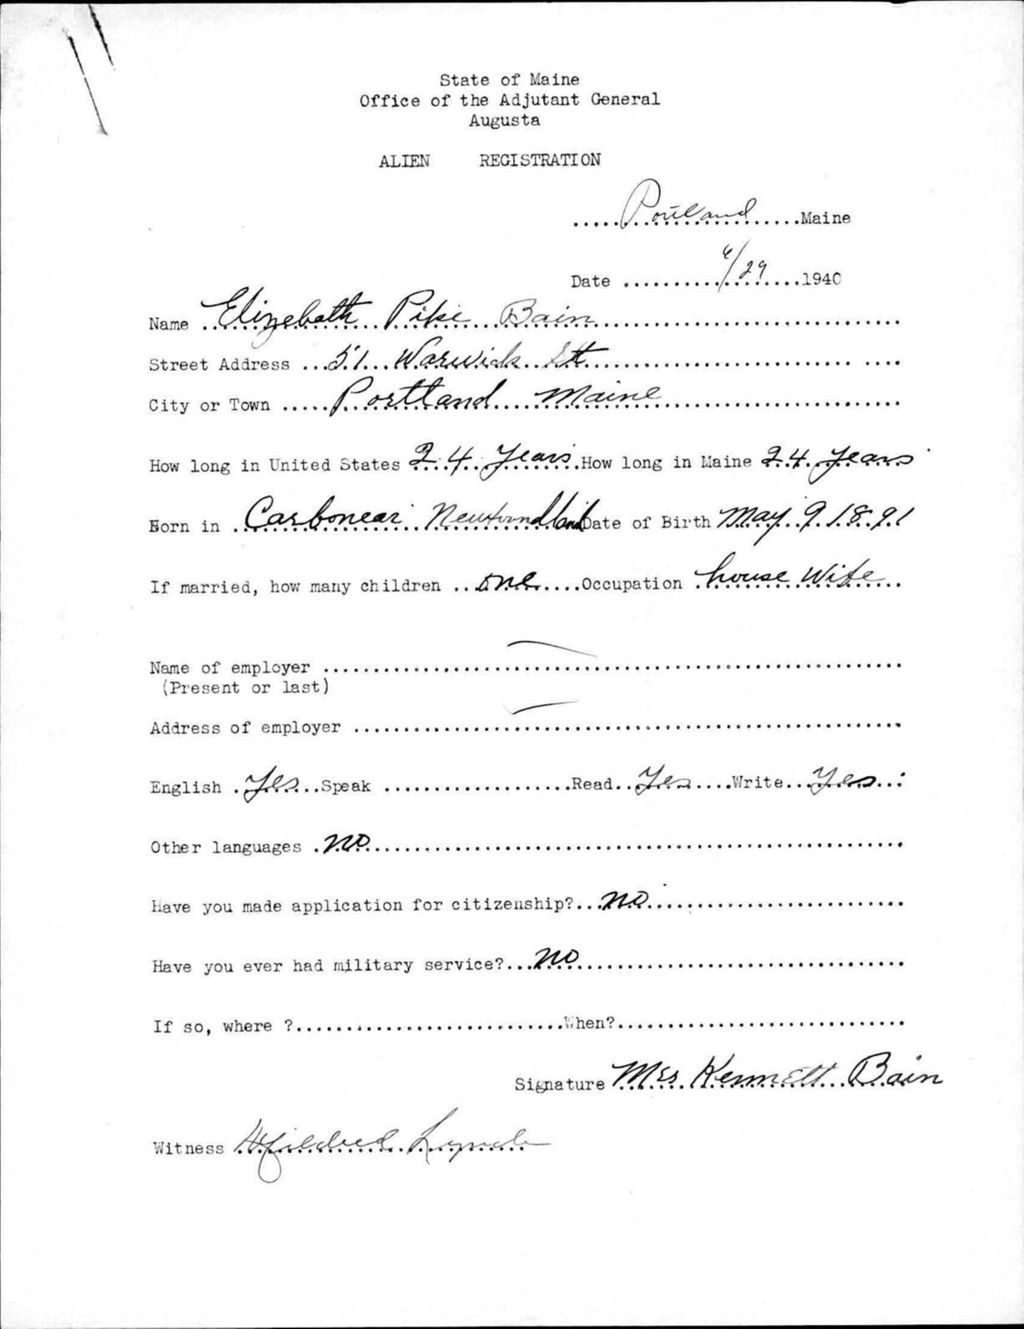 State of Maine
Office of the Adjutant General
Augusta
ALIEN REGISTRATION
Portland Maine
Date 6/29 1940
Name Elizebath Pike Bain
Street Address 51 Warwick Stt
City or Town Portland Maine
How long in United States 24 years How long in Maine 24 years
Born in Carbonear Newfoundland Date of Birth May 9 1891
If married, how many children one Occupation house Wife
Name of employer
(Present or last)
Address of employer
English Yes Speak Read Yes Write Yes
Other languages no
Have you made application for citizenship? no
Have you ever had military service? no
If so, where ? When?
Signature Mrs Kennett Bain
Witness Mildred Lynch